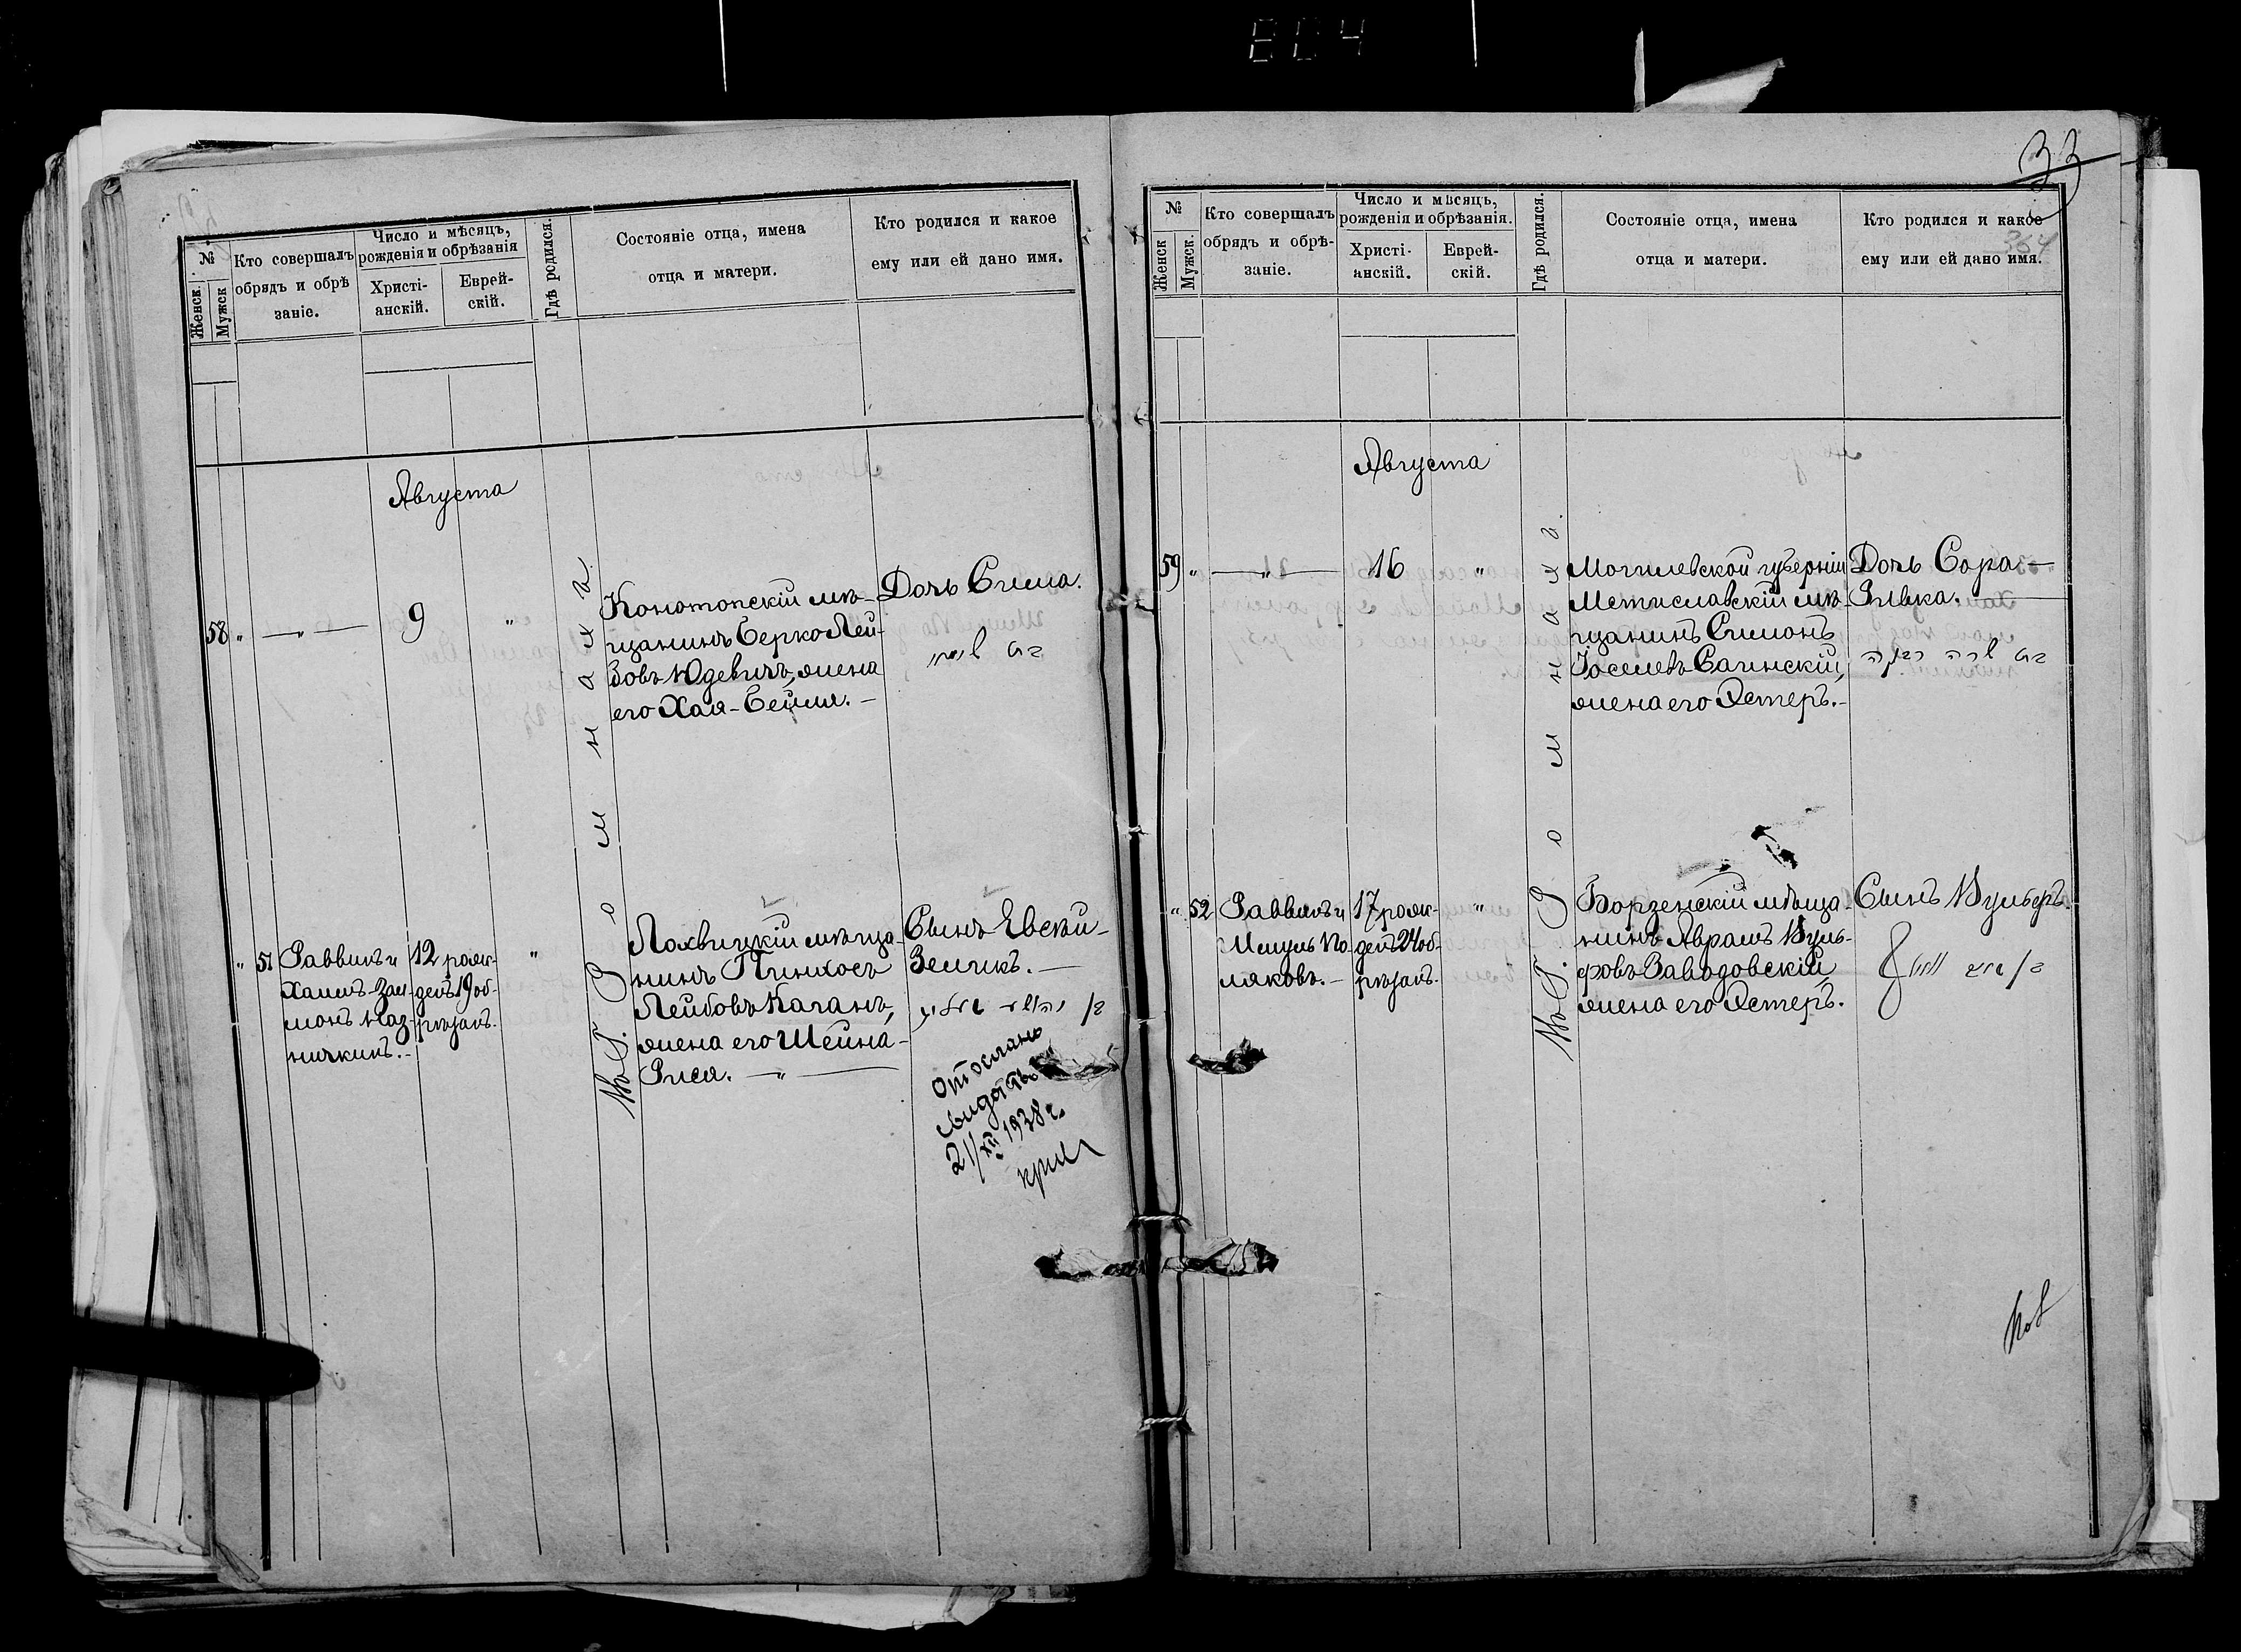 804
№
Женск.
Мужск
Кто совершалъ
обрядъ и обрѣ
заніе.
Число и мѣсяцъ,
рожденія и обрѣзанія
Христі-
анскій.
Еврей-
скій.
Гдѣ родился.
Состояніе отца, имена
отца и матери.
Кто родился и какое
ему или ей дано имя.
Августа
58 " — " — 9 "
Конотопскій мѣ-
щанинъ Берко Лей-
бовъ Юдевичъ, жена
его Хая-Бейля. —
Дочь Сима.
" 51
Раввинъ и
Хаимъ-Зал-
монъ Каз-
начкинъ. -
12 рож-
денъ 19 об-
рѣзанъ.
"
Въ Г. Роменахъ
Лохвицкій мѣща-
нинъ Пинхосъ
Лейбовъ Каганъ,
жена его Шейна-
Рися. — " —
Сынъ Евсѣй-
Зеликъ. —
Отослано
свидѣт
21/XII 1938 г.
33
354
№
Женск
Мужск.
Кто совершалъ
обрядъ и обрѣ-
заніе.
Число и мѣсяцъ,
рожденія и обрѣзанія.
Христі-
анскій.
Еврей-
скій.
Гдѣ родился.
Состояніе отца, имена
отца и матери.
Кто родился и какое
ему или ей дано имя.
Августа
59 " — " — 16 "
Могилевской губерніи
Мстиславскій мѣ-
щанинъ Симонъ
Іоселевъ Сагинскій,
жена его Эстеръ. -
Дочь Сора —
Ривка. —
בת שרה רבקה
" 52
Раввинъ и
Шмуль По-
ляковъ. -
17 рож-
денъ 24 об-
рѣзанъ.
"
Борзенскій мѣща-
нинъ Абрамъ Вуль-
фовъ Заводовскій,
жена его Эстеръ.
Сынъ Вульфъ.